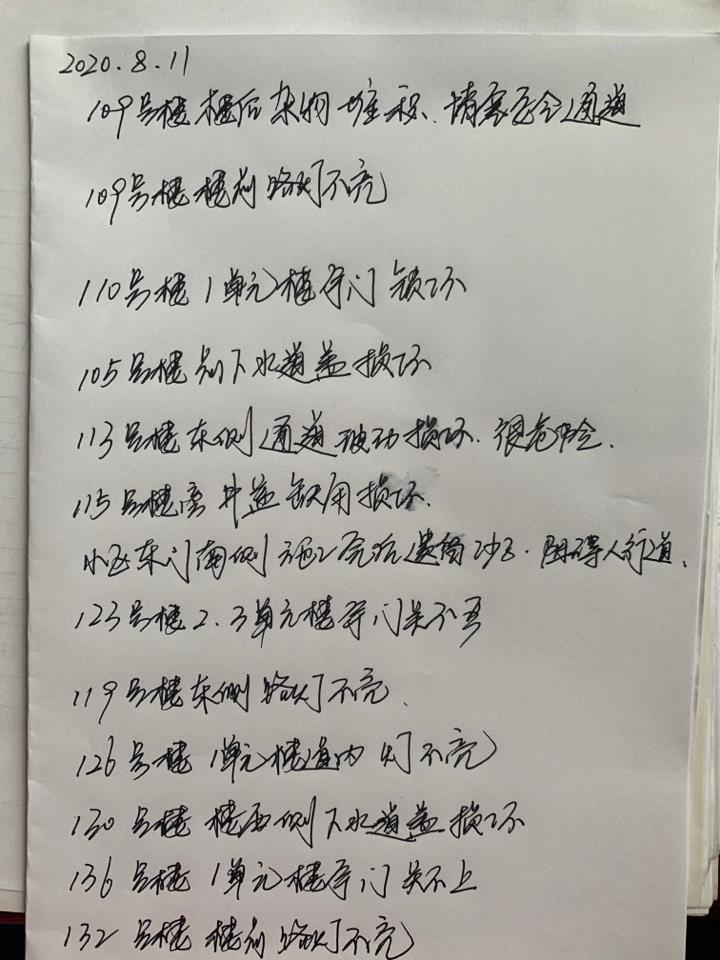 2020.8.11
109号楼 楼后杂物堆积、请客安全通道
109号楼 楼前路灯不亮
110号楼1单元楼宇门锁坏
105号楼前下水道盖损坏
113号楼东侧通道坡 损坏.很危险.
115号楼 井盖 损坏.
小区东门南侧施工完 遗留沙石.阻碍人行道.
123号楼2.3单元楼宇门关不
119号楼东侧路灯不亮.
126号楼 1单元楼道内灯不亮
130号楼 楼西侧下水道盖损坏
136号楼 1单元楼宇门关不上
132号楼 楼前路灯不亮